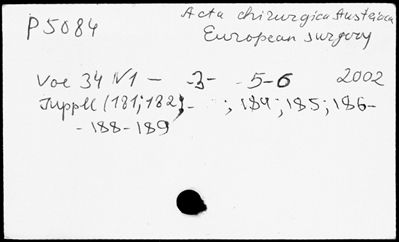 P5084
Acta chirurgica Austriaca
European surgery
Voe 34 N1 - -3- 5-6 2002
Suppll (181; 182; - ; 184; 185; 186-
- 188-189,